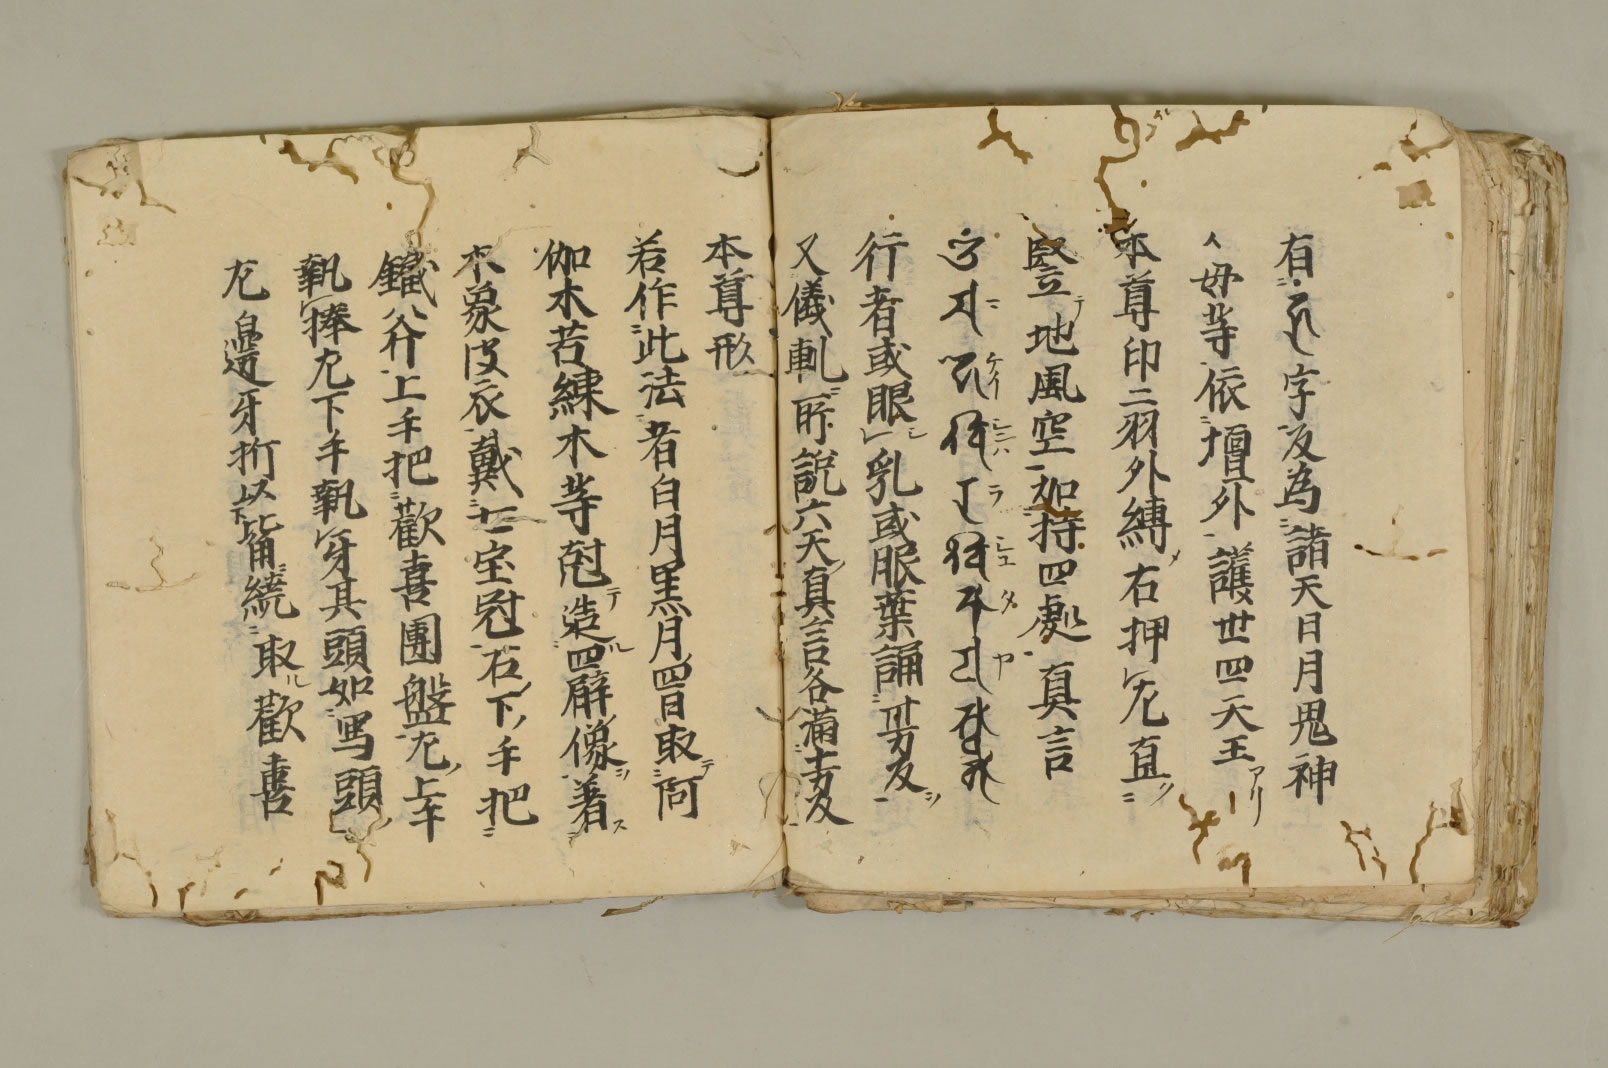 有字反為諸天日月鬼神
八母等依壇外護世四天王アリ
本尊印二羽外縛右押左直
竪地風空如持四處真言
ニ ケイ シニハ ラ シエ タ ヤ
行者或眼乳或服葉誦廿万反
又儀軌所説六天真言各満十万反
本尊形
若作此法者白月黒月四日取阿
伽木若練木等尅造四臂像着
木象皮衣戴七宝冠右下手把
鑯八介上手把歓喜團盤左上手
執捧左下手執牙其頭如馬頭
左邊牙折以下皆繞取歓喜